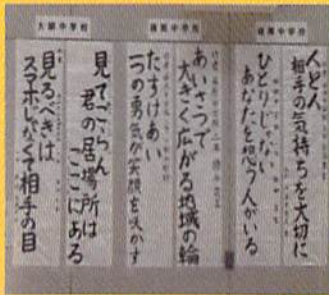 人と人
相手の気持ちを大切に
ひとりじゃない
あなたを想う人がいる
あいさつで
大きく広がる地域の輪
たすけあい
一つの勇気が笑顔を咲かす
見てごらん
君の居場所は
ここにある
見るべきは
スマホじゃなくて相手の目